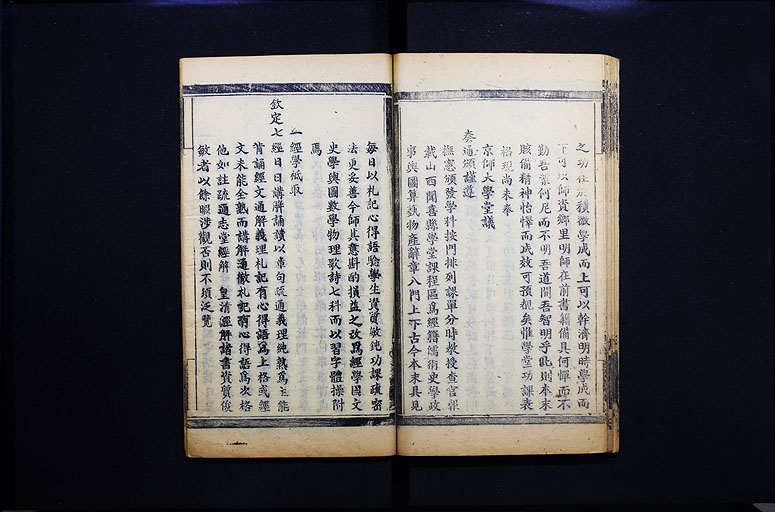 之功在於積微學成而上可以幹濟明時學成而
下可以師資鄉里明師在前書籍備具何憚而不
勤吾業何尼而不明吾道開吾智明乎此則本末
賅備精神怡懌而成效可預覩矣惟學堂功課表
格現尚未奉
京師大學堂議
奏通頒謹遵
撫憲頒發學科按門排列課程分時教授查官報
載山西聞喜縣學堂課程區為經籍儒術史學政
事輿圖算數物產辭章八門上下古今本末具見
每日以札記心得語驗學生資質敏鈍功課疏密
法更妥善今師其意斟酌損益之改為經學國文
史學輿圖數學物理歌詩七科而以習字體操附
焉
一經學祗取
欽定七經日日講解誦讀以章句疏通義理純熟為主能
背誦經文通解義理札記有心得語為上格或經
文未能全熟而講解通徹札記有心得語為次格
他如註疏通志堂經解 皇清經解諸書資質俊
敏者以餘暇涉觀否則不須泛覽